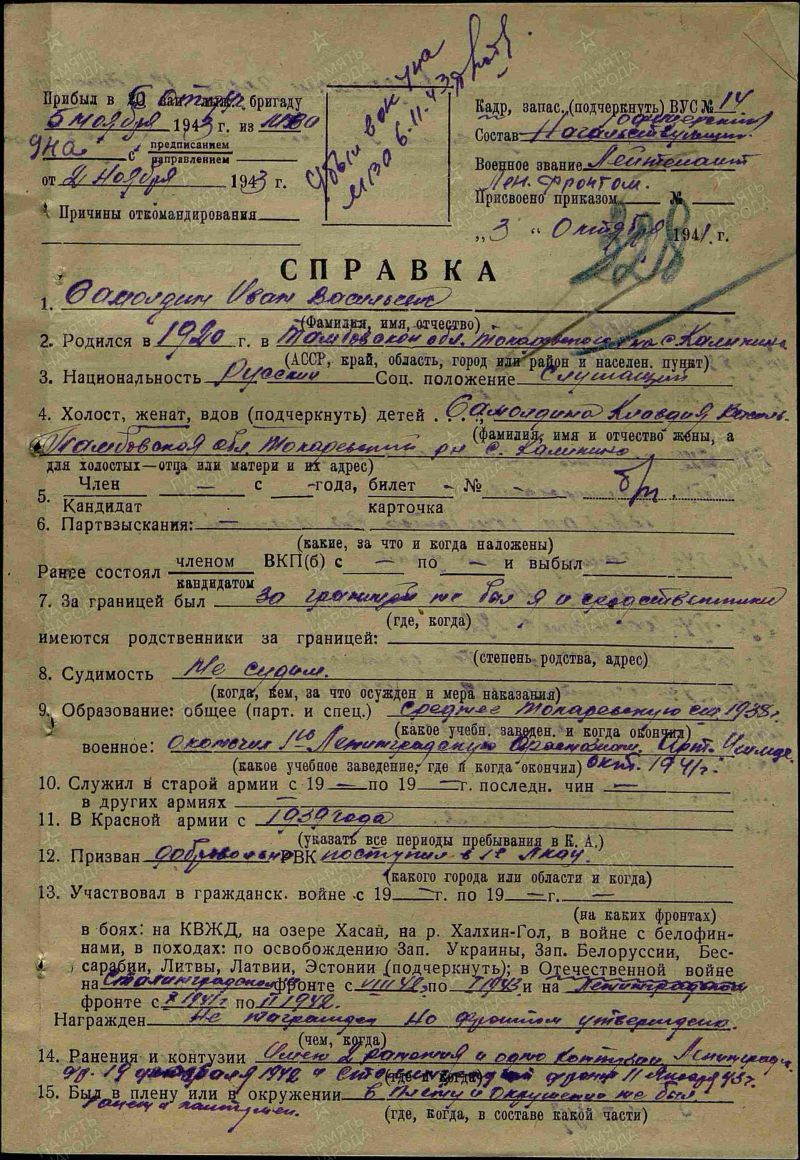 Убыл в ОК УНА
МВО 6.11.43
Прибыл в 20 зап. бригаду
5 ноября 1943 г. из МВО
УНА с предписанием
направлением
от 2 ноября 1943 г.
Причины откомандирования
Кадр, запас. (подчеркнуть) ВУС № 14
Состав Начальствующий
Военное звание Лейтенант
Лен. фронтом.
Присвоено приказом №
„3“ Октября 1941 г.
328
СПРАВКА
1. Самолдин Иван Васильевич
(Фамилия, имя, отчество)
2. Родился в 1920 г. в Тамбовской обл. Токаревского р-на с. Калинино
(АССР, край, область, город или район и населен. пункт)
3. Национальность Русский Соц. положение Служащий
4. Холост, женат, вдов (подчеркнуть) детей Самолдина Клавдия
(фамилия, имя и отчество жены, а
Тамбовская обл. Токаревский рн с. Калинино
для холостых—отца или матери и их адрес)
5. Член — с -года, билет - № - б/п.
Кандидат карточка
6. Партвзыскания: —
(какие, за что и когда наложены)
Ранее состоял членом ВКП(б) с — по — и выбыл —
кандидатом
7. За границей был за границей не был я и родственники
(где, когда)
имеются родственники за границей:
(степень родства, адрес)
8. Судимость Не судим.
(когда, кем, за что осужден и мера наказания)
9. Образование: общее (парт. и спец.) среднее Токаревскую сш 1938г.
(какое учебн. заведен. и когда окончил)
военное: окончил 1ое Ленинградскую Краснознам. Арт. Училище
(какое учебное заведение, где и когда окончил) окт. 1941г.
10. Служил в старой армии с 19 — по 19 — г. последн. чин —
в других армиях —
11. В Красной армии с 1939 года
(указать все периоды пребывания в К. А.)
12. Призван добровольно РВК поступил в 1е ЛКАУ.
(какого города или области и когда)
13. Участвовал в гражданск. войне с 19 — г. по 19 — г. —
(на каких фронтах)
в боях: на КВЖД, на озере Хасан, на р. Халхин-Гол, в войне с белофин-
нами, в походах: по освобождению Зап. Украины, Зап. Белоруссии, Бес-
сарабии, Литвы, Латвии, Эстонии (подчеркнуть); в Отечественной войне
на Сталинградском фронте с VIII 42 по I 1943 и на Ленинградском
фронте с X 1941г по II 1942.
Награжден Не награжден Но фронтом утверждено.
(чем, когда)
14. Ранения и контузии Имею 2 ранения и одну контузию Ленинград.
(где и когда)
фр. 19 февраля 1942 и Сталинградский фронт 11 Января 43г.
15. Был в плену или в окружении в плену и окружении не был
(где, когда, в составе какой части)
ранен и контужен.